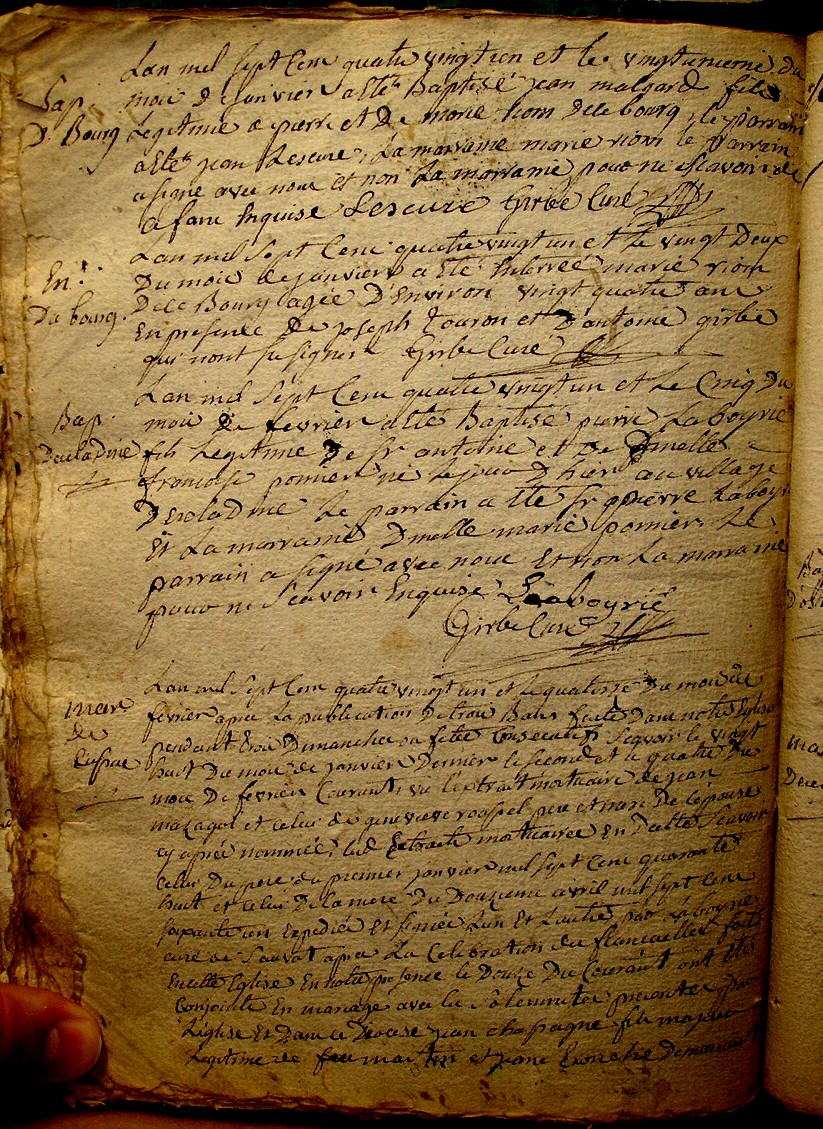 Lan mil sept Cent quatre vingt un et le vingtunieme du
Bap.
mois de janvier a eté Baptisé jean malgard fils
D. Bourg
Legitime a pierre et De marie riom de ce bourg, le parrain
a eté jean Lescure, La marraine marie riom le parrain
a signé avec nous et non La marraine pour ne scavoir
a faire Enquise Lescure Girbe Curé
Lan mil sept Cent quatre vingt un et le vingt Deux
En.
Du mois de janvier a eté Enterrée marie riom
Du bourg.
De ce Bourg agée D'Environ vingt quatre ans
En presence De joseph Touron et D'antoine girbe
qui nont su signer Girbe Curé
Lan mil sept Cent quatre vingt un et Le Cinq Du
Bap.
mois de fevrier a eté Baptisé pierre Laboyrie
fils Legitime De sr antoine et De Dmelle
francoise pomier né Le jour D'hier au village
Le parrain a eté sr pierre Laboyrie
Et La marraine Dmelle marie pomier Le
parrain a signé avec nous Et non La marraine
pour ne Scavoir Enquise Laboyrie
Girbe Curé
Lan mil sept Cent quatre vingt un et le quatorze Du mois de
mare
fevrier apres La publication De trois Bans faite Dans notre Eglise
de
pendant trois Dimanches ou fetes Consecutifs scavoir le vingt
huit Du mois de janvier Dernier le second et le quatre Du
mois De fevrier Courant, vu l'extrait mortuaire de jean
et celui de genevieve roussel pere et mere De L'epouse
cy aprés nommée, lesd Extraits mortuaires En Datte scavoir
celui Du pere du premier janvier mil sept Cent quarante
huit et celui De la mere Du Douzieme avril mil sept Cent
soixante un Expediés Et signés L'un Et L'autre par Laboyrie
curé de Sauvat apres La Celebration des fiancailles faite
En cette Eglise En notre presence le Douze Du Courant ont eté
Conjoints En mariage avec les Solemnités prescrites par
L'eglise Et Dans ce Diocese jean chapagne fils majeur
Legitime de feu martin et jeane